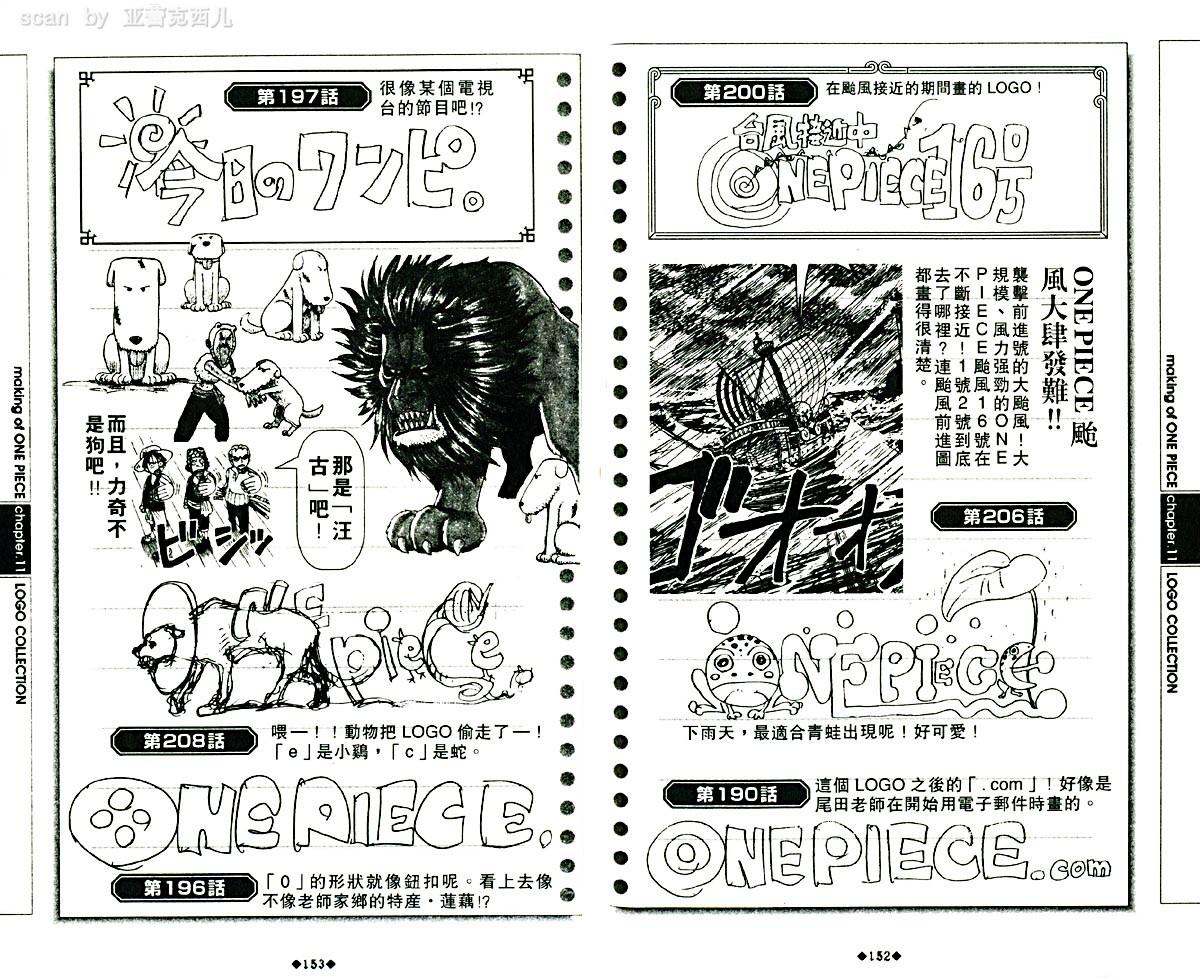 scan by 亚蕾克西儿
第200話
在颱風接近的期間畫的 LOGO！
台風接近中
ONE PIECE 16号
ONE PIECE 颱
風大肆發難!!
襲擊前進號的大颱風！大
規模、風力强勁的ONE
PIECE颱風16號在
不斷接近！1號2號到底
去了哪裡？連颱風前進圖
都畫得很清楚。
ゴオオオ
第206話
ONE PIECE
下雨天，最適合青蛙出現呢！好可愛！
第190話
這個 LOGO 之後的「.com」！好像是
尾田老師在開始用電子郵件時畫的。
ONE PIECE.com
◆152◆
making of ONE PIECE
chapter.11
LOGO COLLECTION
第197話
很像某個電視
台的節目吧!?
今日のワンピ。
那是「汪
古」吧！
而且，力奇不
是狗吧!!
ビシッ
ONE piece
第208話
喂一！！動物把 LOGO 偷走了一！
「e」是小鷄，「c」是蛇。
ONE PIECE.
第196話
「O」的形狀就像鈕扣呢。看上去像
不像老師家鄉的特産・蓮藕!?
◆153◆
making of ONE PIECE
chapter.11
LOGO COLLECTION